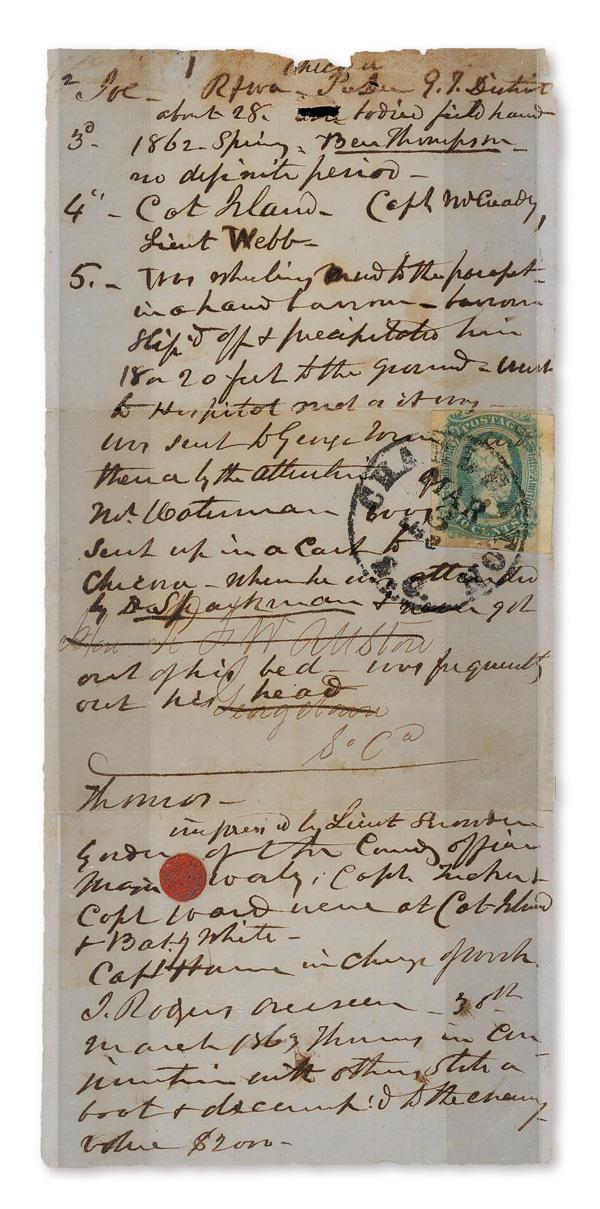 Chicora
2 Joe - RFWA - PeeDee G.T. District
about 28. bodied field hand
3d. 1862 - Spring. Ben Thompson -
no definite period -
4" - Cat Island - Capt McCready,
Lieut Webb -
5. - Was wheeling mud to the parapet -
in a hand barrow - barrow
slip'd off & precipitated him
18 or 20 feet to the ground - went
to Hospital
was sent to George Town and
thence by the
Mr. Waterman
sent up in a Cart to
Chicora - when he was attended
by Dr Sparkman & never got
Hon R F W Allston
out of his bed - was frequently
out his head
Georgetown
So Ca
Thomas -
impress'd by Lieut Snowden
by order of the Comdg officer
Major Capt. Tucker &
Capt Ward were at Cat Island
& Baty White -
Capt in charge of work.
J. Rogers overseer - 30th
March 1863 Thomas in con
junction with others stole a
boat & decamp'd to the enemy
value $2000 -
POSTAGE
CHA
MAR
S.C.